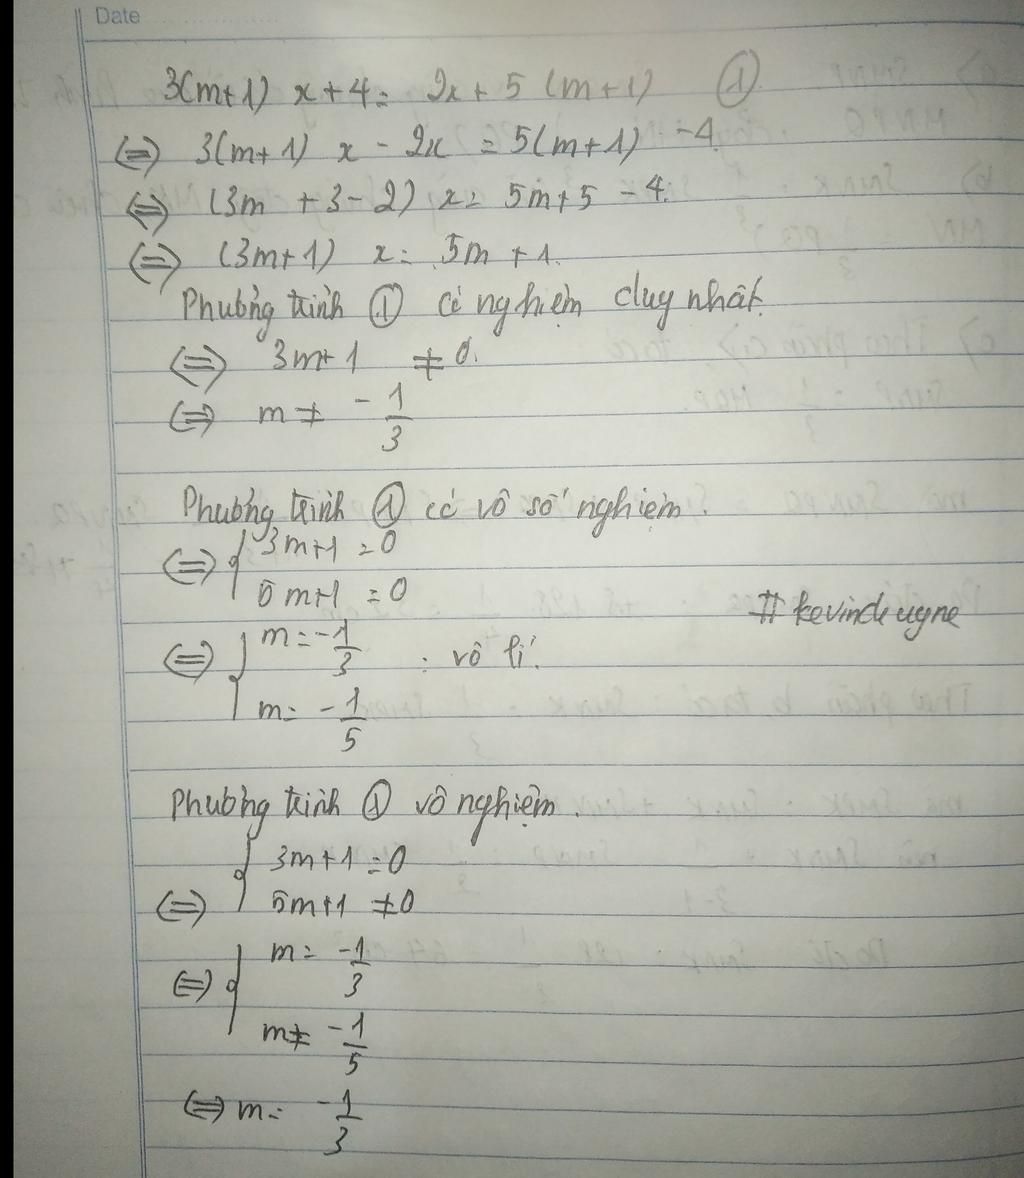 Date
3(m+1) x + 4 = 2x + 5 (m+1) ①
⇔ 3(m+1) x - 2x = 5(m+1) - 4
⇔ (3m + 3 - 2) x = 5m + 5 - 4.
⇔ (3m + 1) x = 5m + 1.
Phương trình ① có nghiệm duy nhất.
⇔ 3m + 1 ≠ 0.
⇔ m ≠ -1/3
Phương trình ① có vô số nghiệm.
⇔ { 3m+1 = 0
5m+1 = 0
# kevinduygne
⇔ { m = -1/3 : vô lí.
m = -1/5
Phương trình ① vô nghiệm.
⇔ { 3m+1 = 0
5m+1 ≠ 0
⇔ { m = -1/3
m ≠ -1/5
⇔ m = -1/3